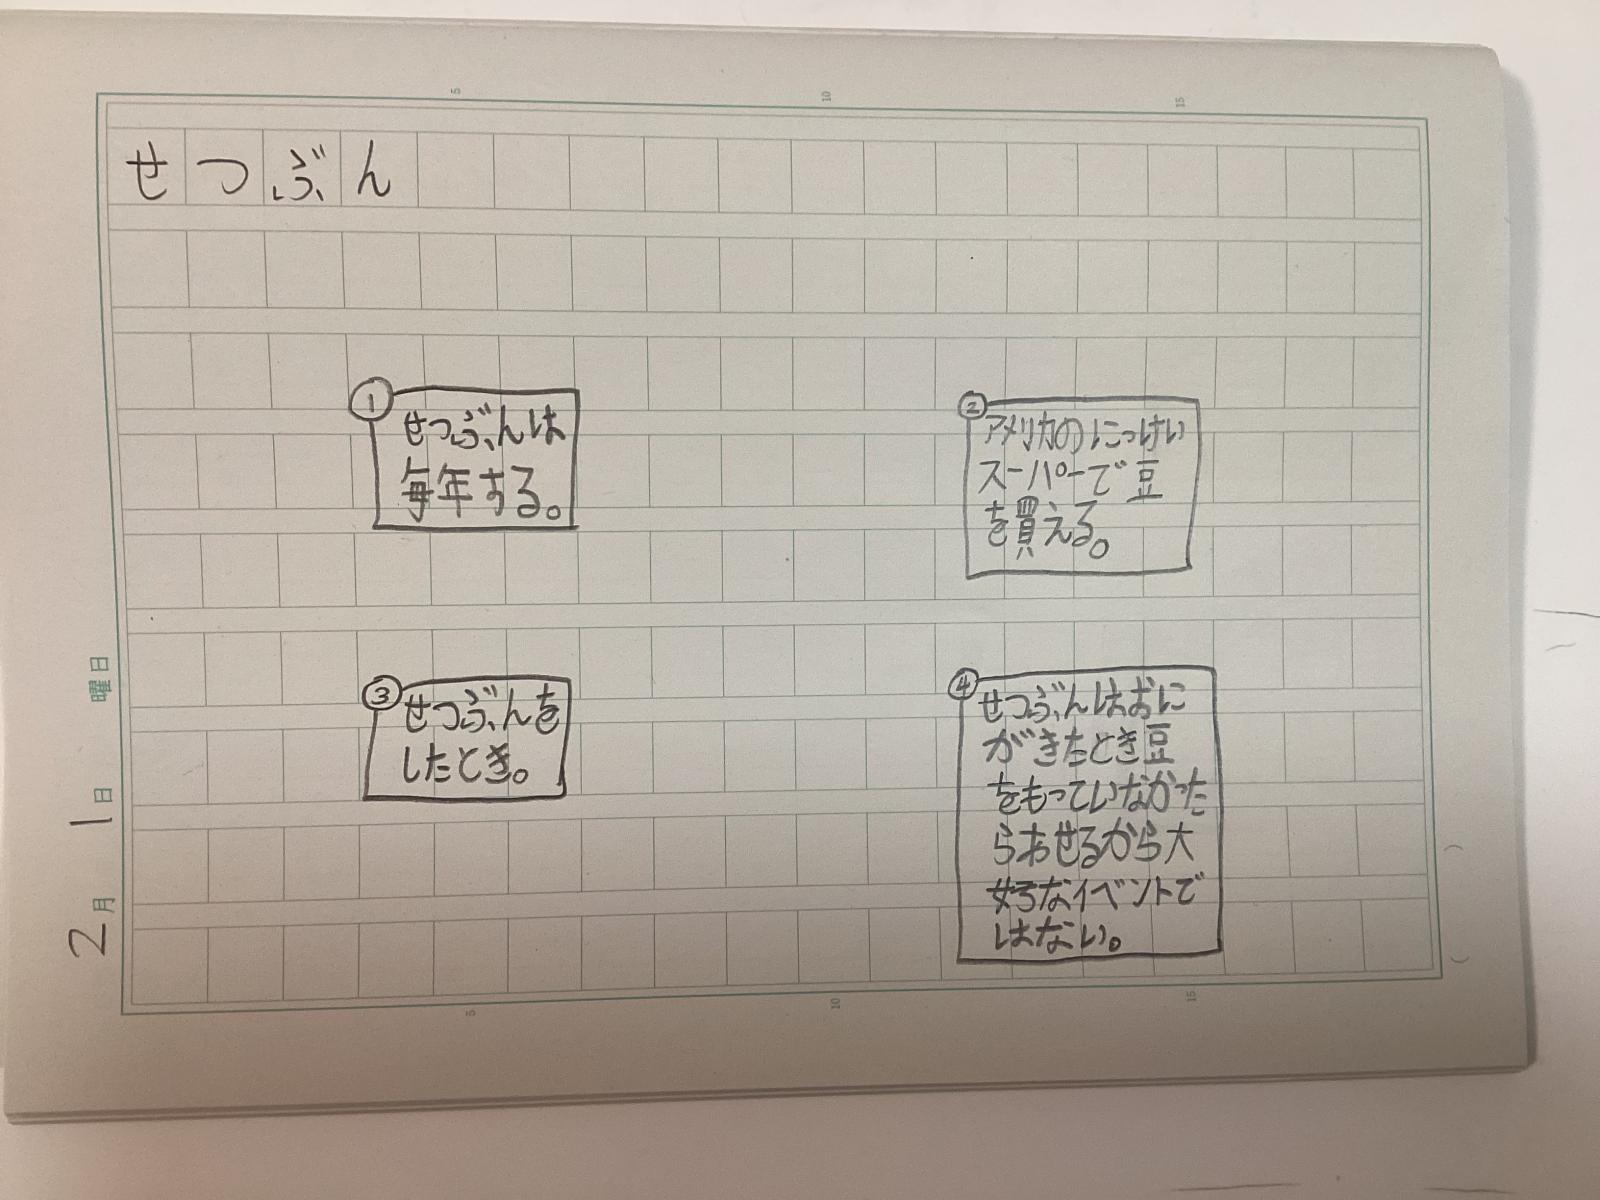 せつぶん
①
せつぶんは
毎年する。
②
アメリカのにっけい
スーパーで豆
を買える。
③
せつぶんを
したとき。
④
せつぶんはおに
がきたとき豆
をもっていなかった
らおせるから大
好なイベントで
はない。
2月1日 曜日
5
10
15
5
10
15